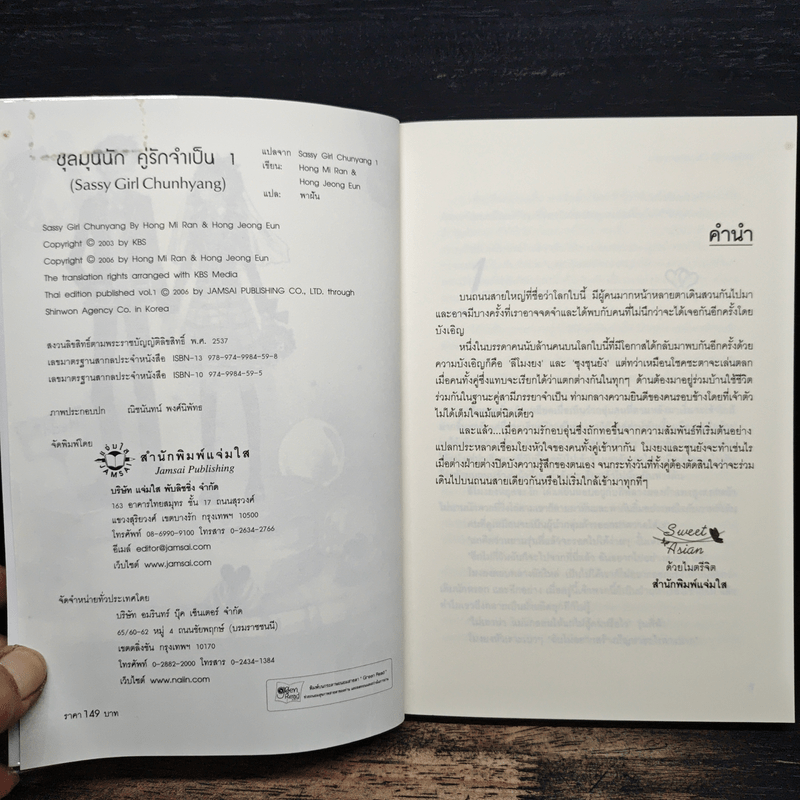 ชุลมุนนัก คู่รักจำเป็น 1
(Sassy Girl Chunhyang)
แปลจาก Sassy Girl Chunyang 1
เขียน: Hong Mi Ran &
Hong Jeong Eun
แปล: พาฝัน
Sassy Girl Chunyang By Hong Mi Ran & Hong Jeong Eun
Copyright © 2003 by KBS
Copyright © 2006 by Hong Mi Ran & Hong Jeong Eun
The translation rights arranged with KBS Media
Thai edition published vol.1 © 2006 by JAMSAI PUBLISHING CO., LTD. through
Shinwon Agency Co. in Korea
สงวนลิขสิทธิ์ตามพระราชบัญญัติลิขสิทธิ์ พ.ศ. 2537
เลขมาตรฐานสากลประจำหนังสือ ISBN-13 978-974-9984-59-8
เลขมาตรฐานสากลประจำหนังสือ ISBN-10 974-9984-59-5
ภาพประกอบปก ณิชนันทน์ พงศ์นิพัทธ
จัดพิมพ์โดย
สำนักพิมพ์แจ่มใส
Jamsai Publishing
บริษัท แจ่มใส พับลิชชิ่ง จำกัด
163 อาคารไทยสมุทร ชั้น 17 ถนนสุรวงศ์
แขวงสุริยวงศ์ เขตบางรัก กรุงเทพฯ 10500
โทรศัพท์ 08-6990-9100 โทรสาร 0-2634-2766
อีเมล์ editor@jamsai.com
เว็บไซต์ www.jamsai.com
จัดจำหน่ายทั่วประเทศโดย
บริษัท อมรินทร์ บุ๊ค เซ็นเตอร์ จำกัด
65/60-62 หมู่ 4 ถนนชัยพฤกษ์ (บรมราชชนนี)
เขตตลิ่งชัน กรุงเทพฯ 10170
โทรศัพท์ 0-2882-2000 โทรสาร 0-2434-1384
เว็บไซต์ www.naiin.com
ราคา 149 บาท
คำนำ
บนถนนสายใหญ่ที่ชื่อว่าโลกใบนี้ มีผู้คนมากหน้าหลายตาเดินสวนกันไปมา
และอาจมีบางครั้งที่เราอาจจดจำและได้พบกับคนที่ไม่นึกว่าจะได้เจอกันอีกครั้งโดย
บังเอิญ
หนึ่งในบรรดาคนนับล้านคนบนโลกใบนี้ที่มีโอกาสได้กลับมาพบกันอีกครั้งด้วย
ความบังเอิญก็คือ 'ลีโมงยง' และ 'ซุงชุนยัง' แต่ทว่าเหมือนโชคชะตาจะเล่นตลก
เมื่อคนทั้งคู่ซึ่งแทบจะเรียกได้ว่าแตกต่างกันในทุกๆ ด้านต้องมาอยู่ร่วมบ้านใช้ชีวิต
ร่วมกันในฐานะคู่สามีภรรยาจำเป็น ท่ามกลางความยินดีของคนรอบข้างโดยที่เจ้าตัว
ไม่ได้เต็มใจแม้แต่นิดเดียว
และแล้ว...เมื่อความรักอบอุ่นซึ่งถักทอขึ้นจากความสัมพันธ์ที่เริ่มต้นอย่าง
แปลกประหลาดเชื่อมโยงหัวใจของคนทั้งคู่เข้าหากัน โมงยงและชุนยังจะทำเช่นไร
เมื่อต่างฝ่ายต่างปิดบังความรู้สึกของตนเอง จนกระทั่งวันที่ทั้งคู่ต้องตัดสินใจว่าจะร่วม
เดินไปบนถนนสายเดียวกันหรือไม่เริ่มใกล้เข้ามาทุกทีๆ
Sweet
Asian
ด้วยไมตรีจิต
สำนักพิมพ์แจ่มใส